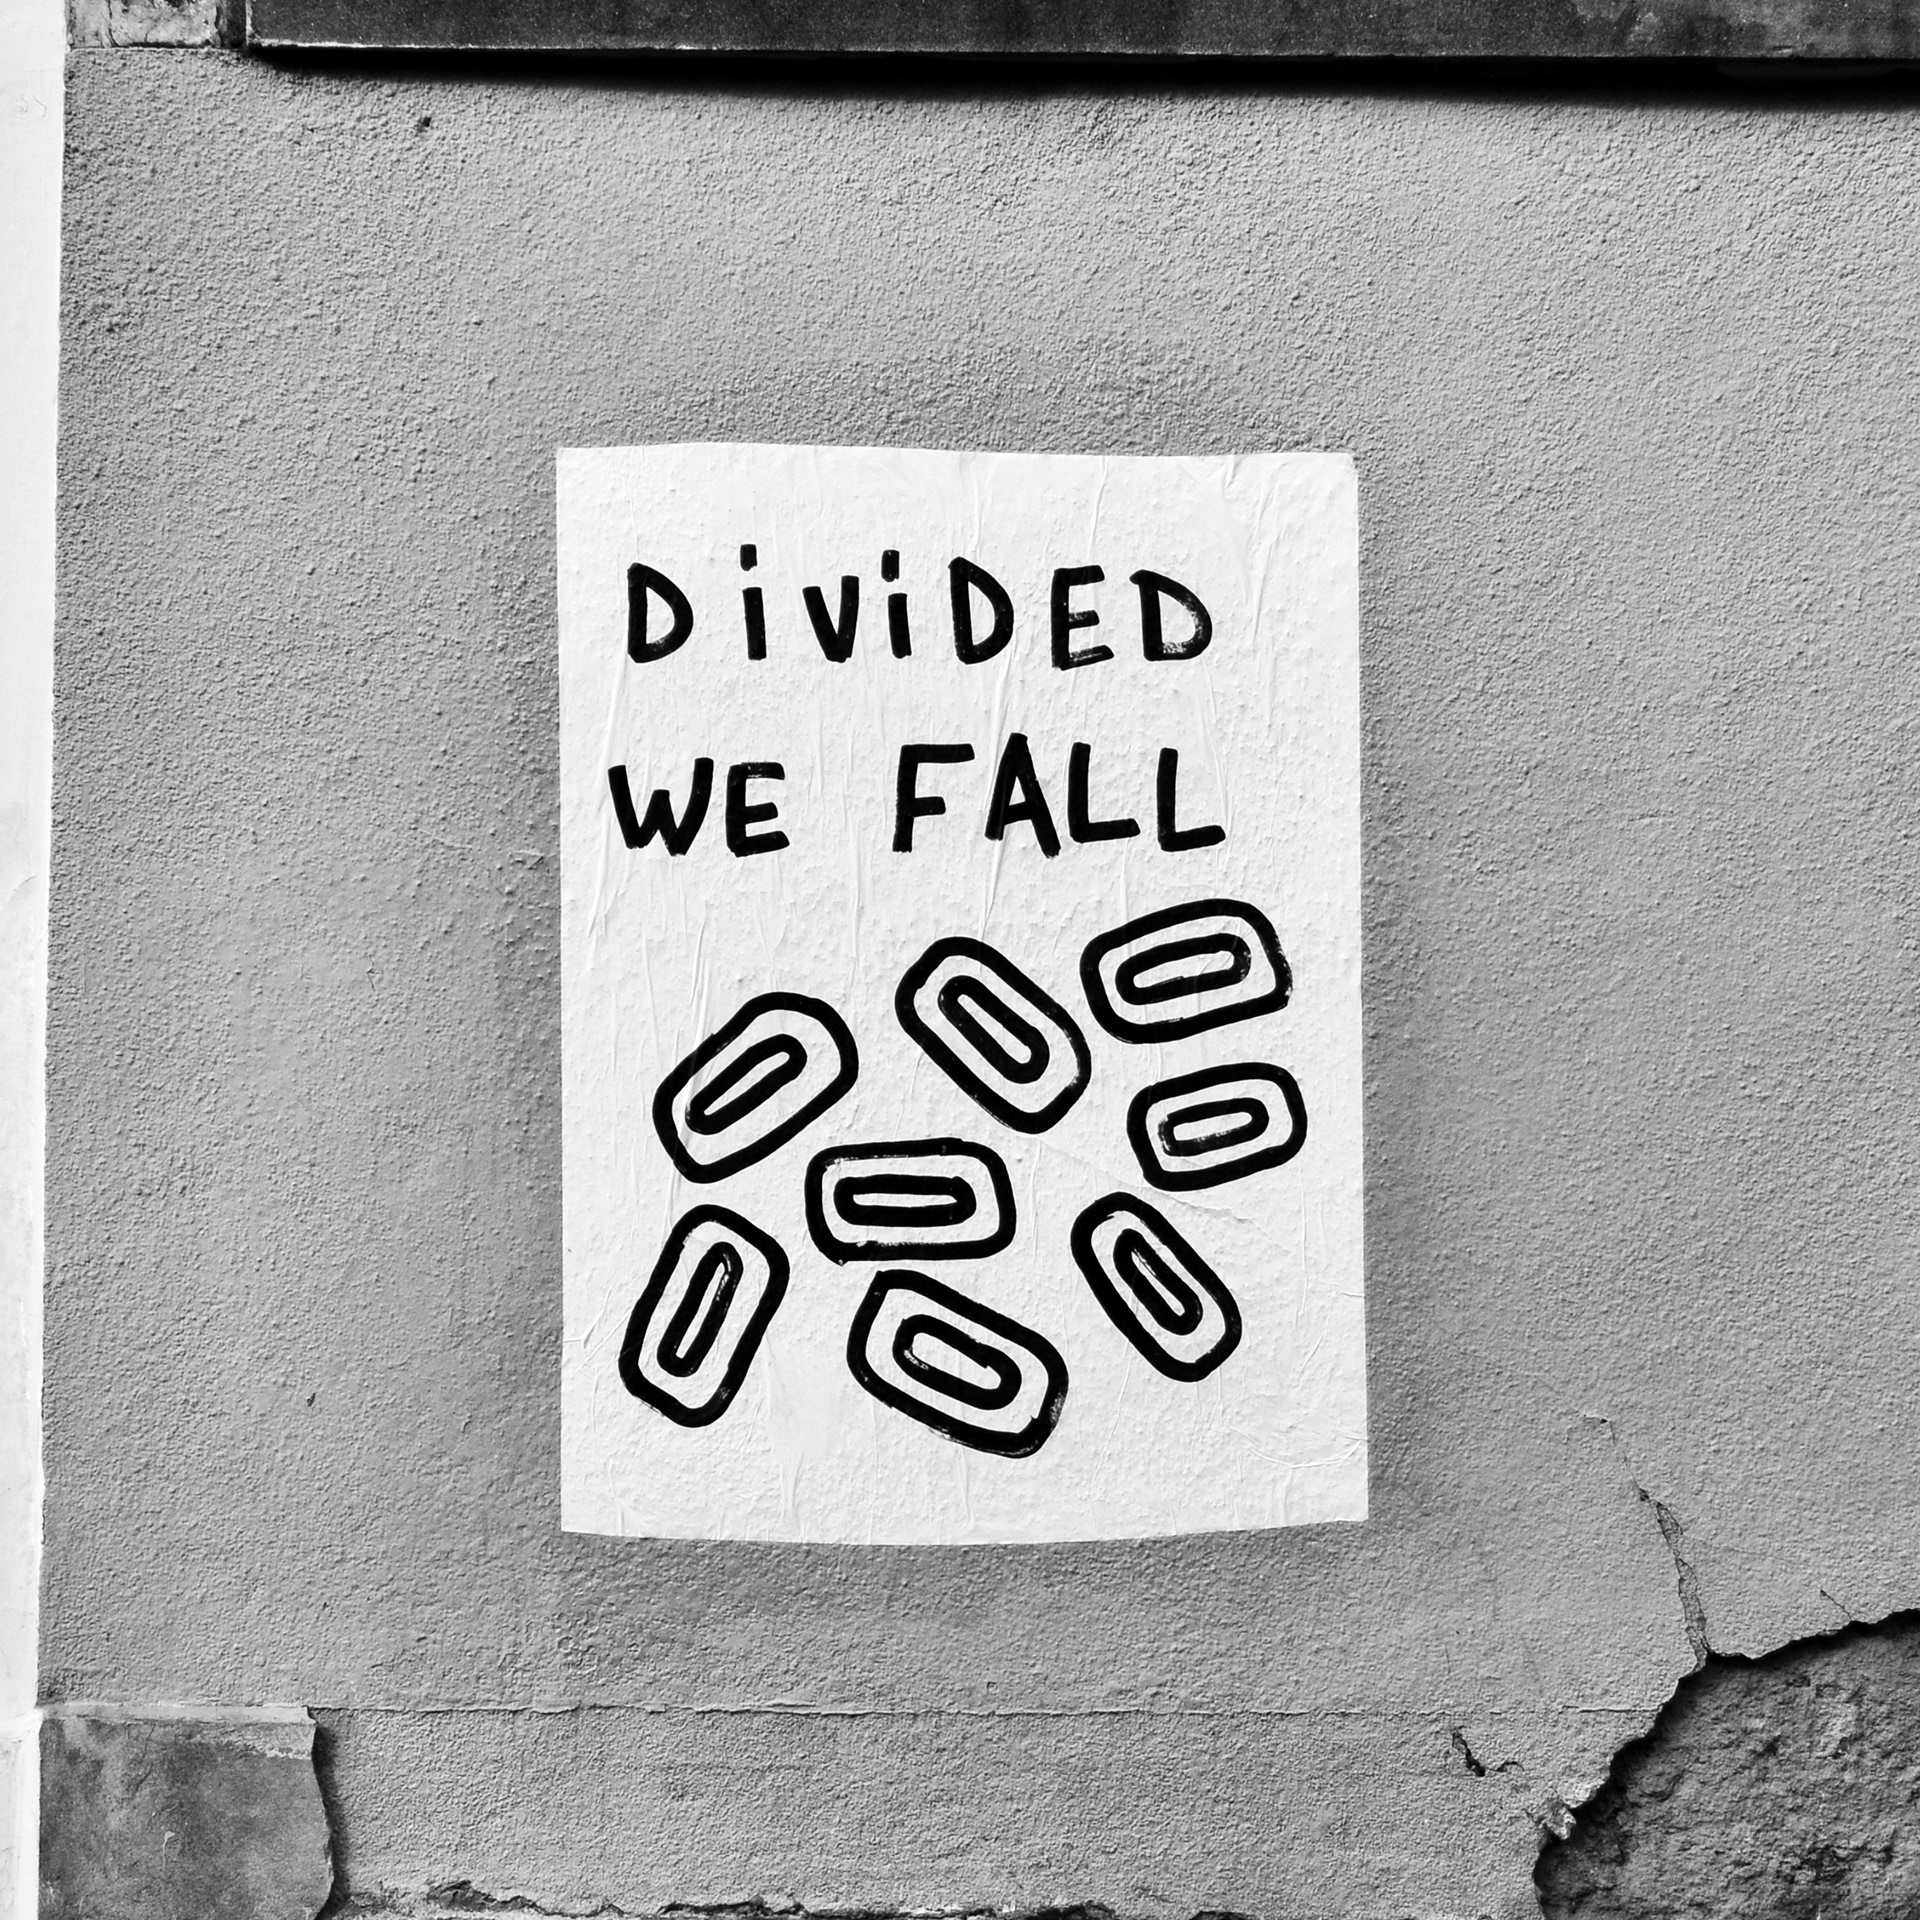 DiViDED
WE FALL